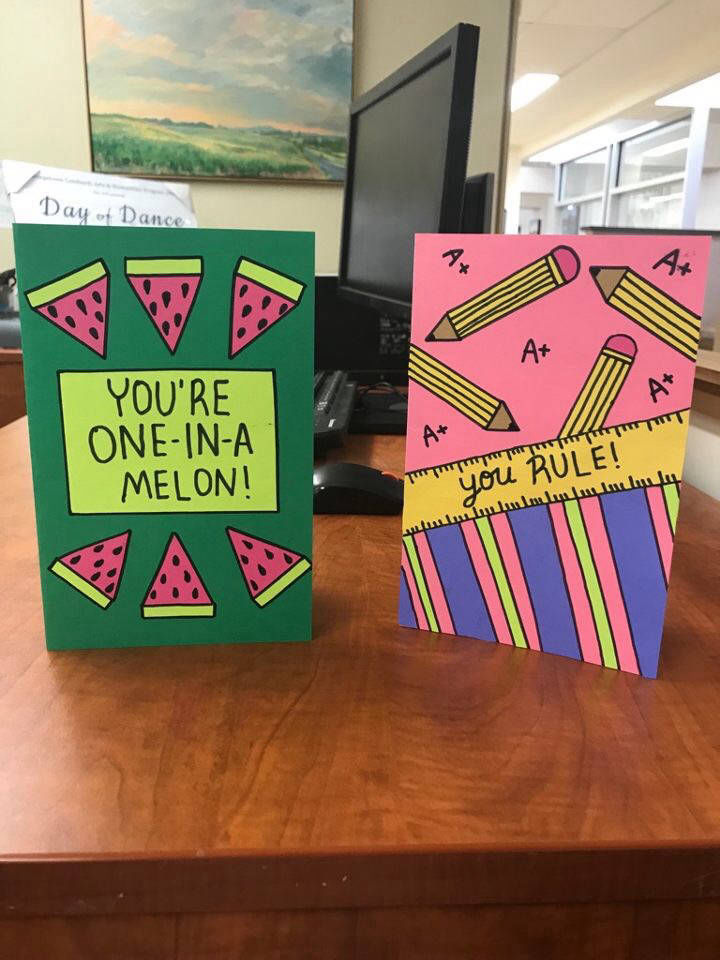 Day of Dance
YOU'RE
ONE-IN-A
MELON!
A+
A+
A+
A+
A+
you RULE!